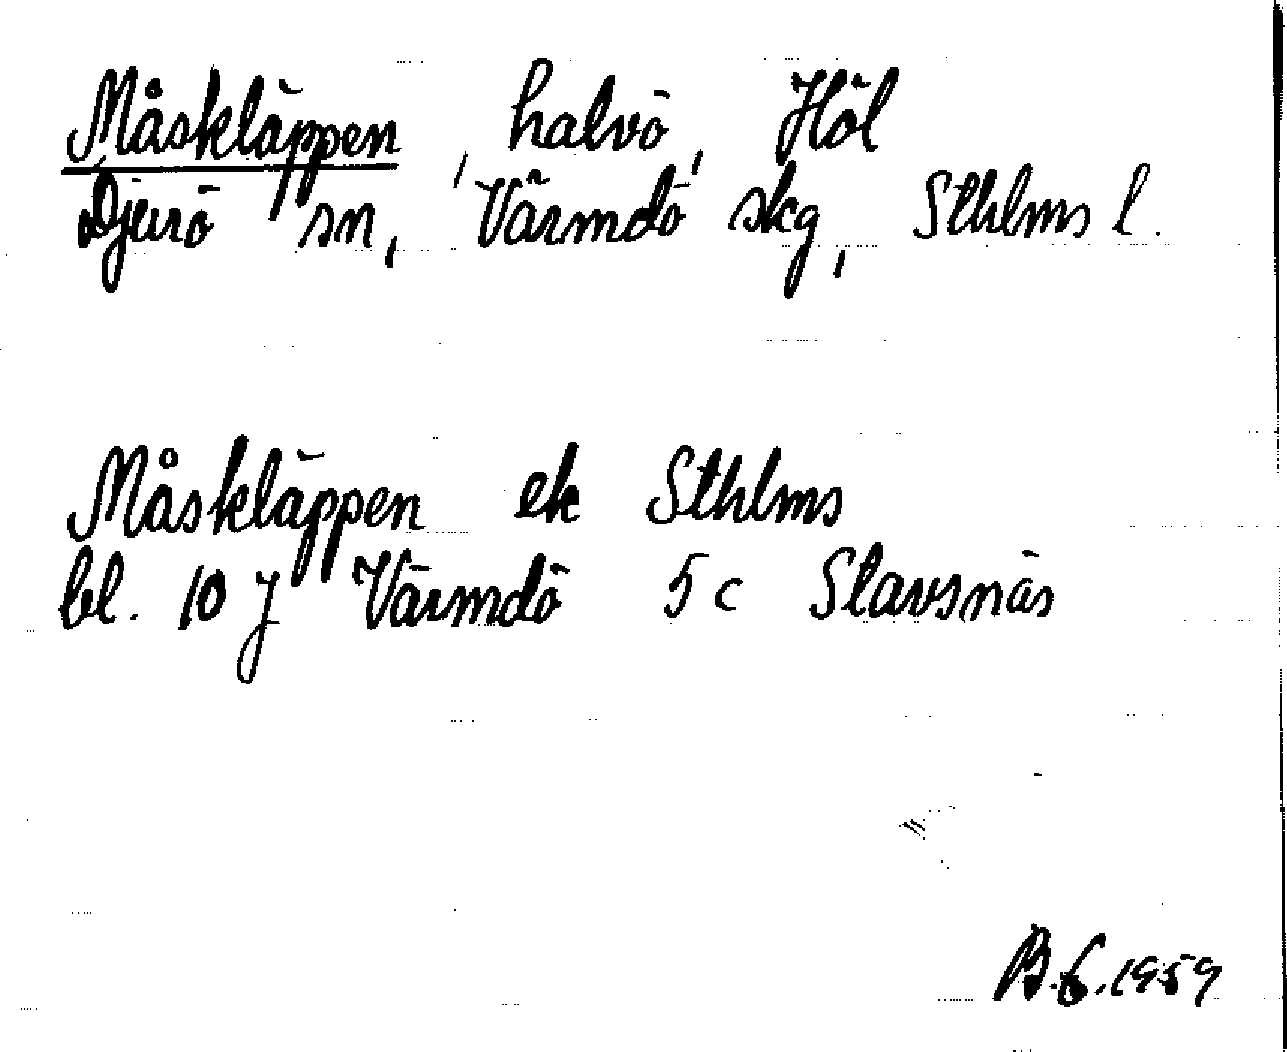 Måskläppen, halvö, Höl
Djurö sn, Värmdö skg, Sthlms l.
Måskläppen ek Sthlms
bl. 10 J Värmdö 5 c Stavsnäs
B.G. 1959